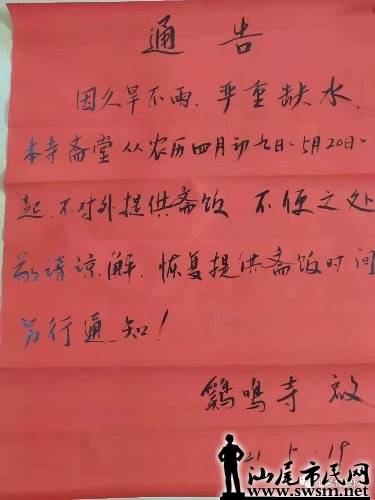 通告
因久旱不雨、严重缺水、
本寺斋堂从农历四月初九日<5月20日>
起、不对外提供斋饭、不便之处
敬请谅解、恢复提供斋饭时间
另行通知!
鷄鳴寺 啟
21.5.19
汕尾市民网
www.swsm.net